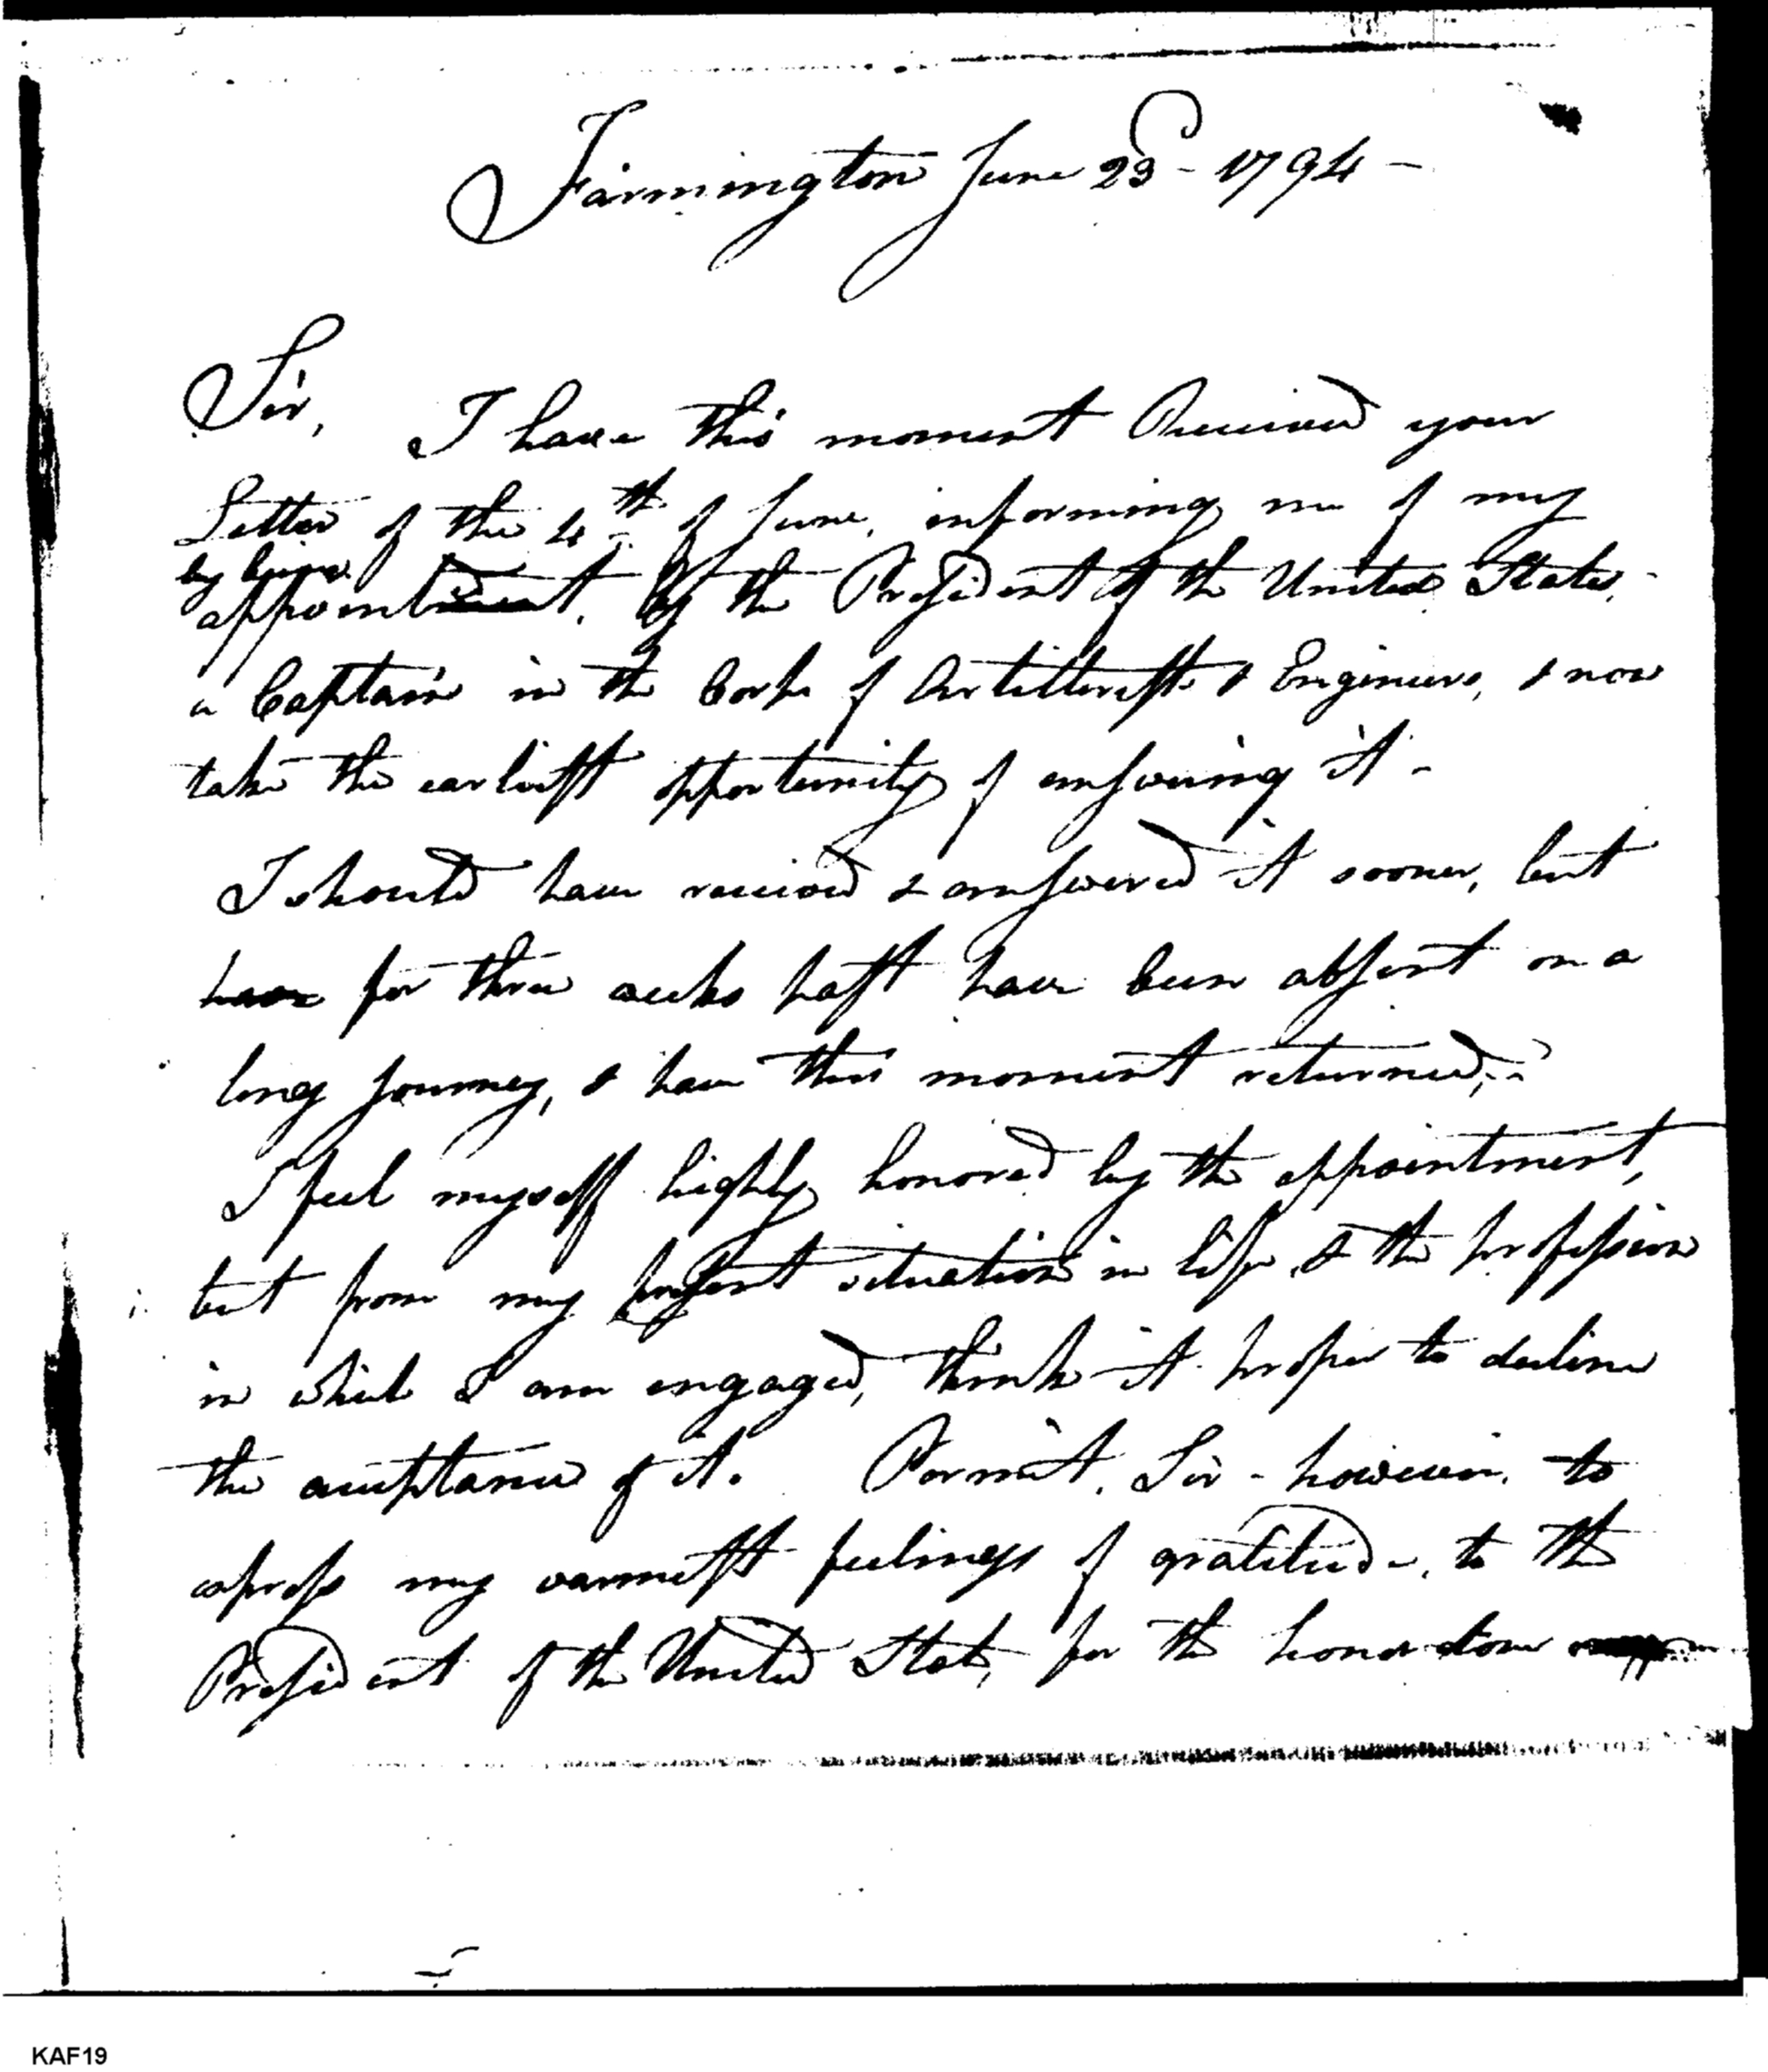 Farmington June 23d - 1794 -
Sir,
I have this moment Received your
Letter of the 4th of June, informing me of my
being
appointment, by the President of the United States,
a Captain in the Corps of Artillerists & Engineers, & now
take the earliest opportunity of answering it -
I should have received & answered it sooner, but
have for three weeks past have been absent on a
long journey, & have this moment returned,
I feel myself highly honored by the appointment,
but from my present situation in life, & the profession
in which I am engaged, think it proper to decline
the acceptance of it. Permit, Sir - however, to
express my warmest feelings of gratitude, to the
President of the United States, for the honor done
KAF19